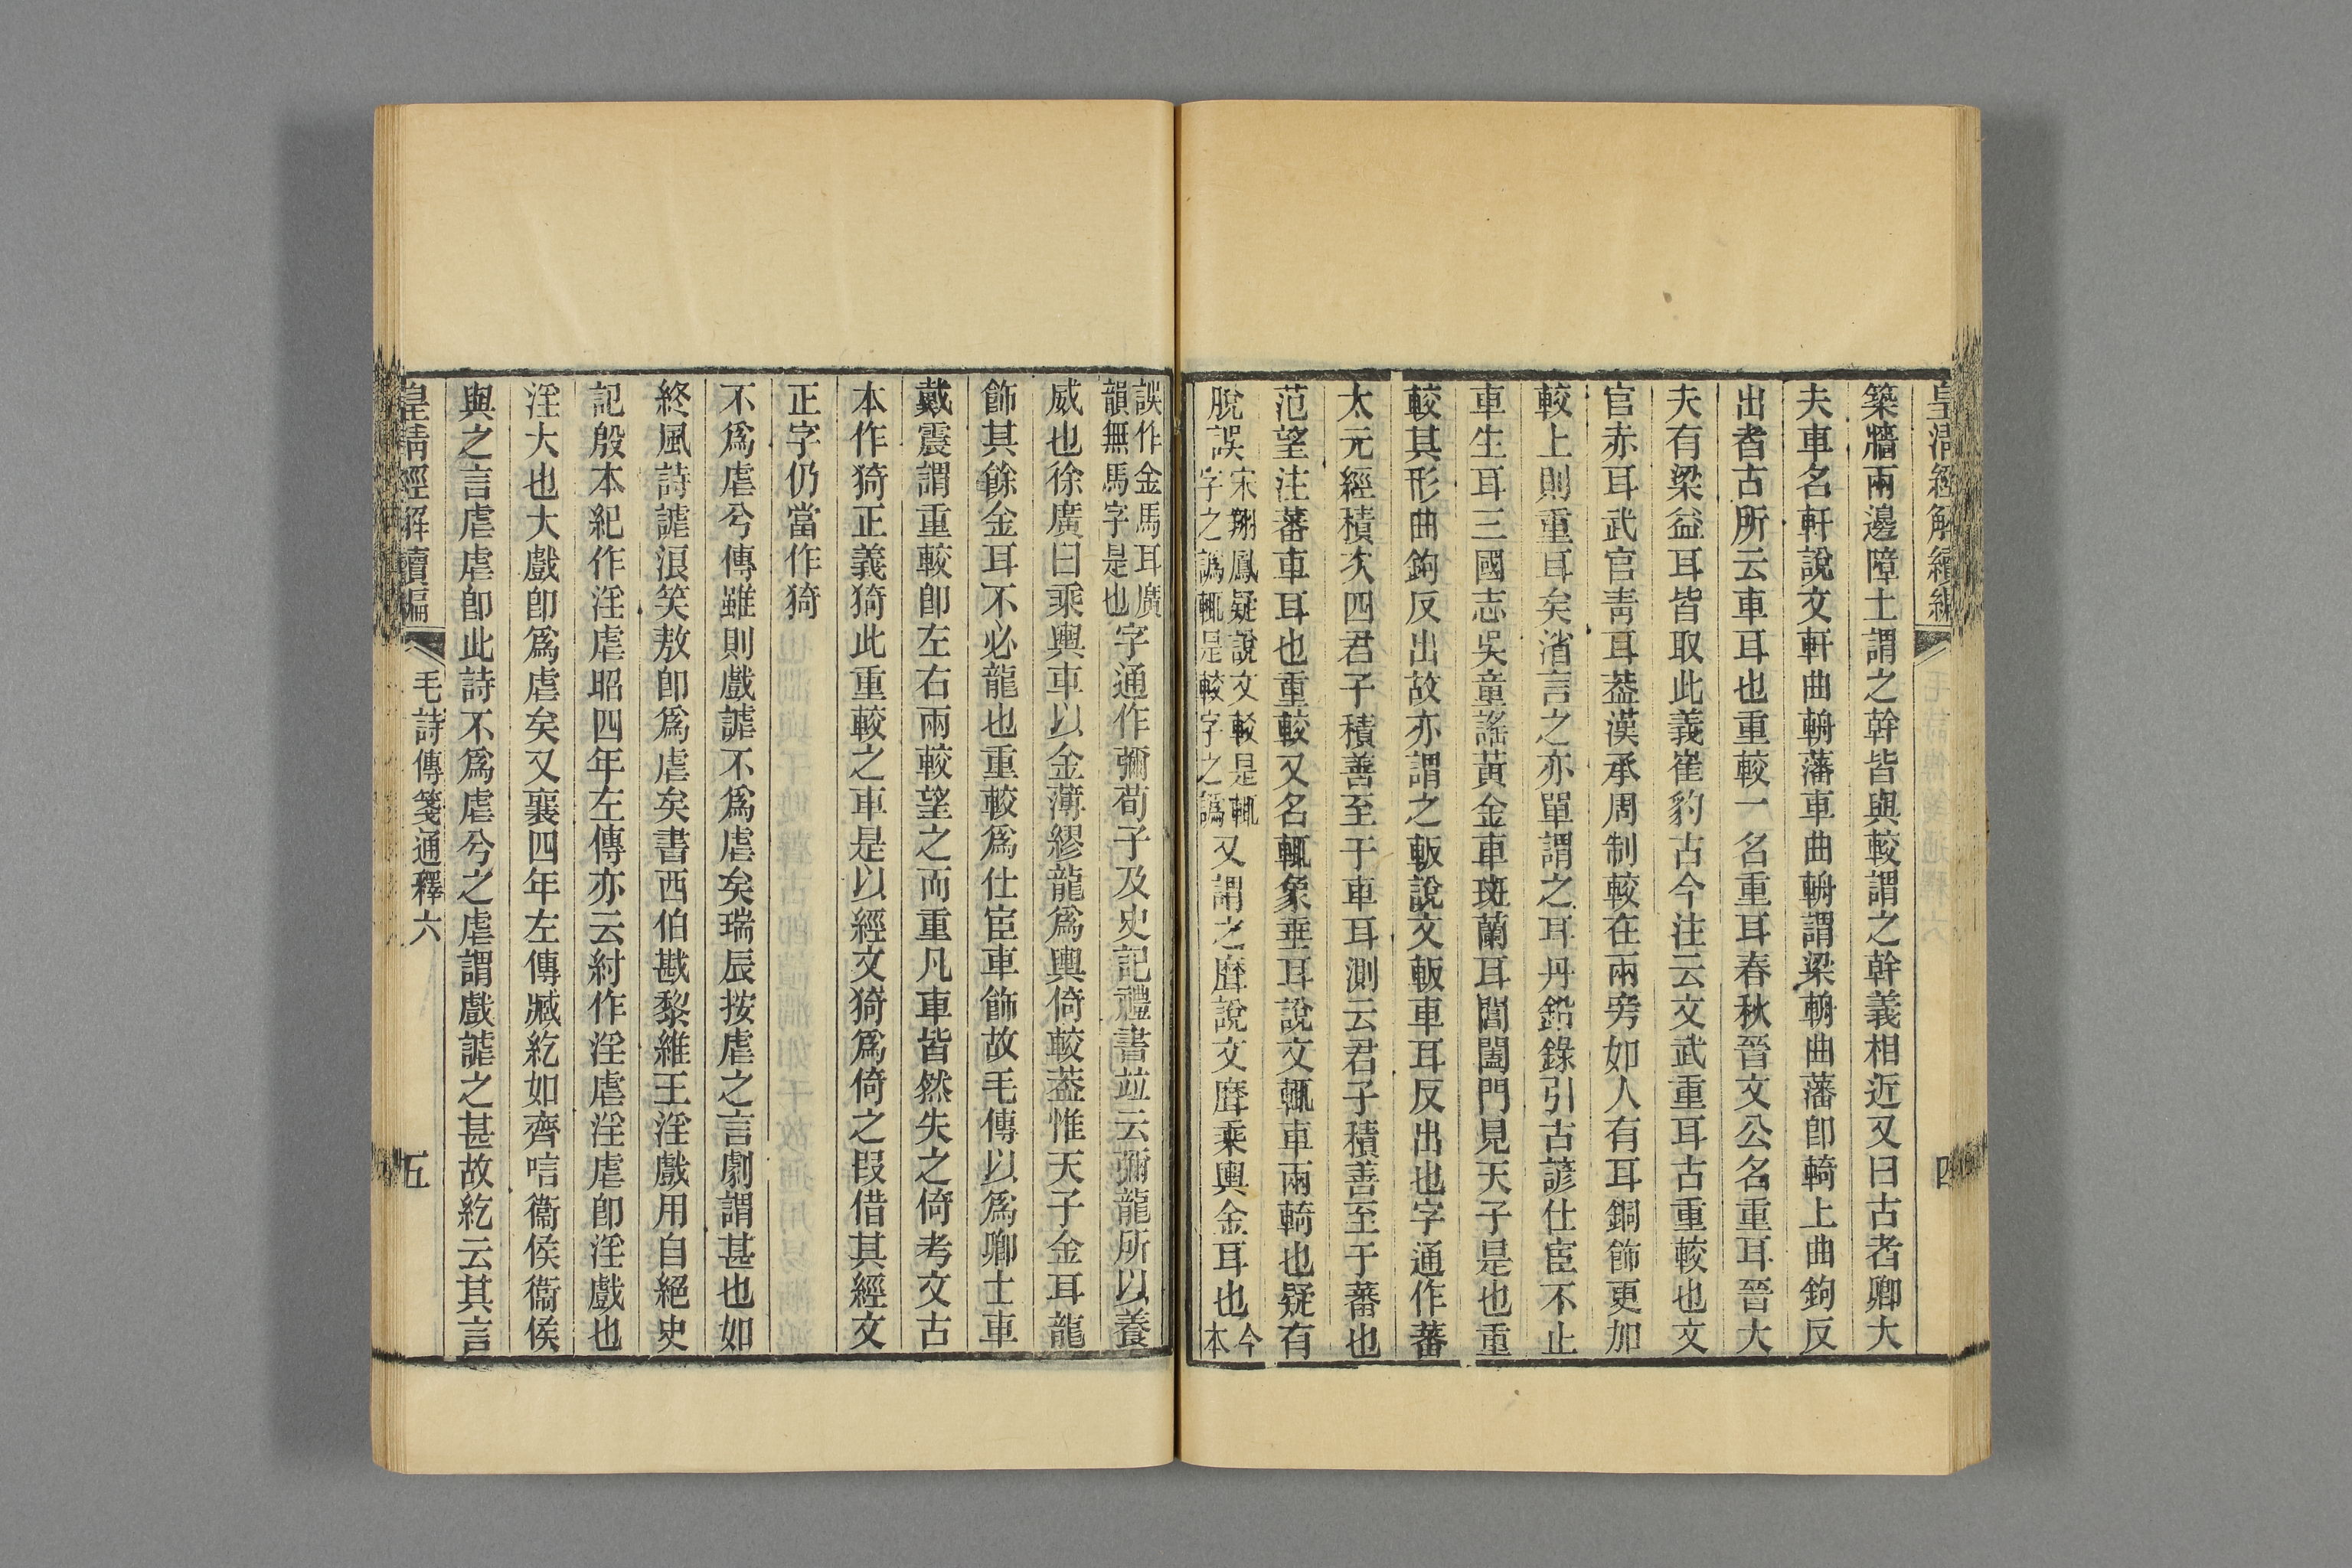 皇清經解續編
四
築牆兩邊障土謂之幹皆與較謂之幹義相近又曰古者卿大
夫車名軒說文軒曲輈藩車曲輈謂梁輈曲藩卽輢上曲鉤反
出者古所云車耳也重較一名重耳春秋晉文公名重耳晉大
夫有梁益耳皆取此義崔豹古今注云文武重耳古重較也文
官赤耳武官青耳葢漢承周制較在兩旁如人有耳銅飾更加
較上則重耳矣渻言之亦單謂之耳丹鉛錄引古諺仕宦不止
車生耳三國志吳童謠黃金車斑蘭耳闓闔門見天子是也重
較其形曲鉤反出故亦謂之軓說文軓車耳反出也字通作蕃
太元經積次四君子積善至于車耳測云君子積善至于蕃也
范望注蕃車耳也重較又名輒象垂耳說文輒車兩輢也疑有
脫誤宋翔鳳疑說文較是輒字之譌輒是較字之譌又謂之䡺說文䡺乘輿金耳也今本
誤作金馬耳廣韻無馬字是也字通作彌荀子及史記禮書竝云彌龍所以養
威也徐廣曰乘輿車以金薄繆龍爲輿倚較葢惟天子金耳龍
飾其餘金耳不必龍也重較爲仕宦車飾故毛傳以爲卿士車
戴震謂重較卽左右兩較望之而重凡車皆然失之倚考文古
本作猗正義猗此重較之車是以經文猗爲倚之叚借其經文
正字仍當作猗
不爲虐兮傳雖則戲謔不爲虐矣瑞辰按虐之言劇謂甚也如
終風詩謔浪笑敖卽爲虐矣書西伯戡黎維王淫戲用自絕史
記殷本紀作淫虐昭四年左傳亦云紂作淫虐淫虐卽淫戲也
淫大也大戲卽爲虐矣又襄四年左傳臧紇如齊唁衞侯衞侯
與之言虐虐卽此詩不爲虐兮之虐謂戲謔之甚故紇云其言
皇清經解續編
毛詩傳箋通釋六
五